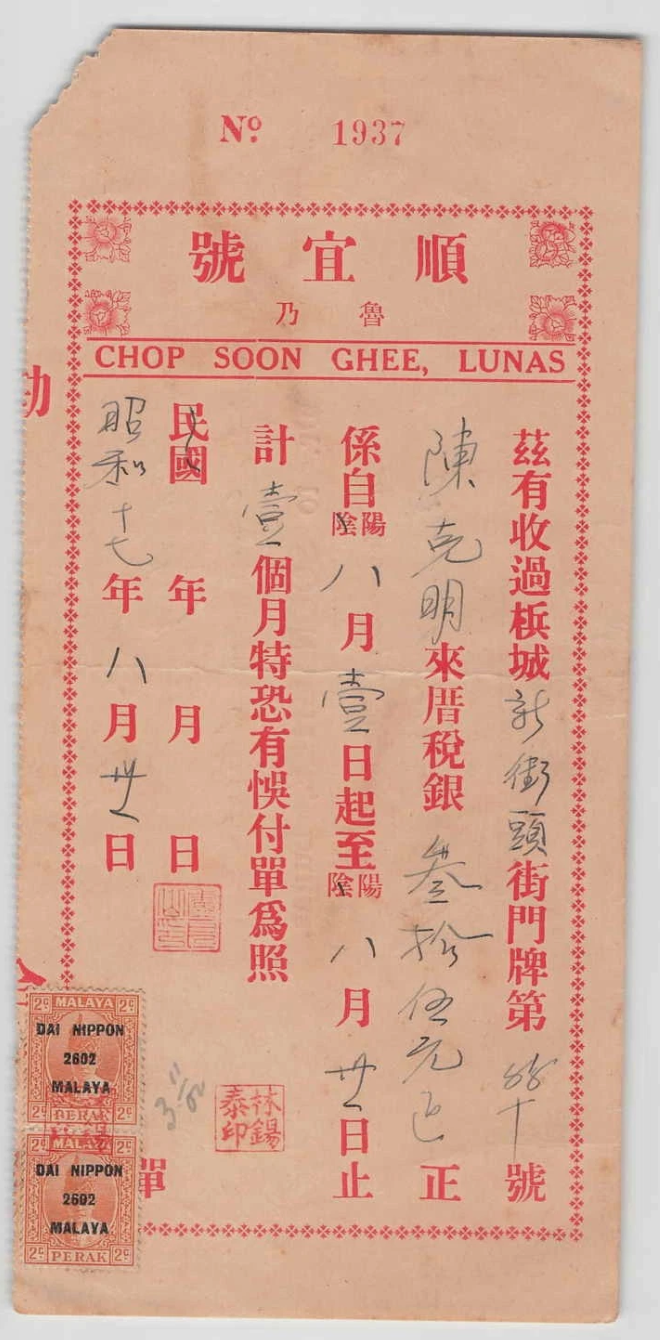 No. 1937
順宜號
魯乃
CHOP SOON GHEE, LUNAS
茲有收過梹城新街頭街門牌第號
陳克明來厝稅銀叁拾伍元正
係自陰陽八月壹日起至陰陽八月卅一日止
計壹個月特恐有悞付單爲照
民國年月日
昭和十七年八月卅一日
林錫泰印
單
2c MALAYA 2c
DAI NIPPON
2602
MALAYA
2c PERAK 2c
MALAYA
DAI NIPPON
2602
MALAYA
2c PERAK 2c